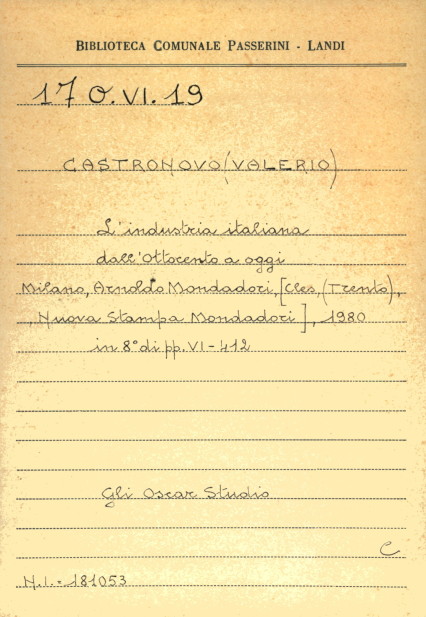 BIBLIOTECA COMUNALE PASSERINI - LANDI
170.VI.19
CASTRONOVO (VALERIO)
L'industria italiana
dall'Ottocento a oggi
Milano, Arnoldo Mondadori, [Cles, (Trento),
Nuova Stampa Mondadori], 1980
in 8° di pp. VI - 412
Gli Oscar Studio
C
N.I. - 181053